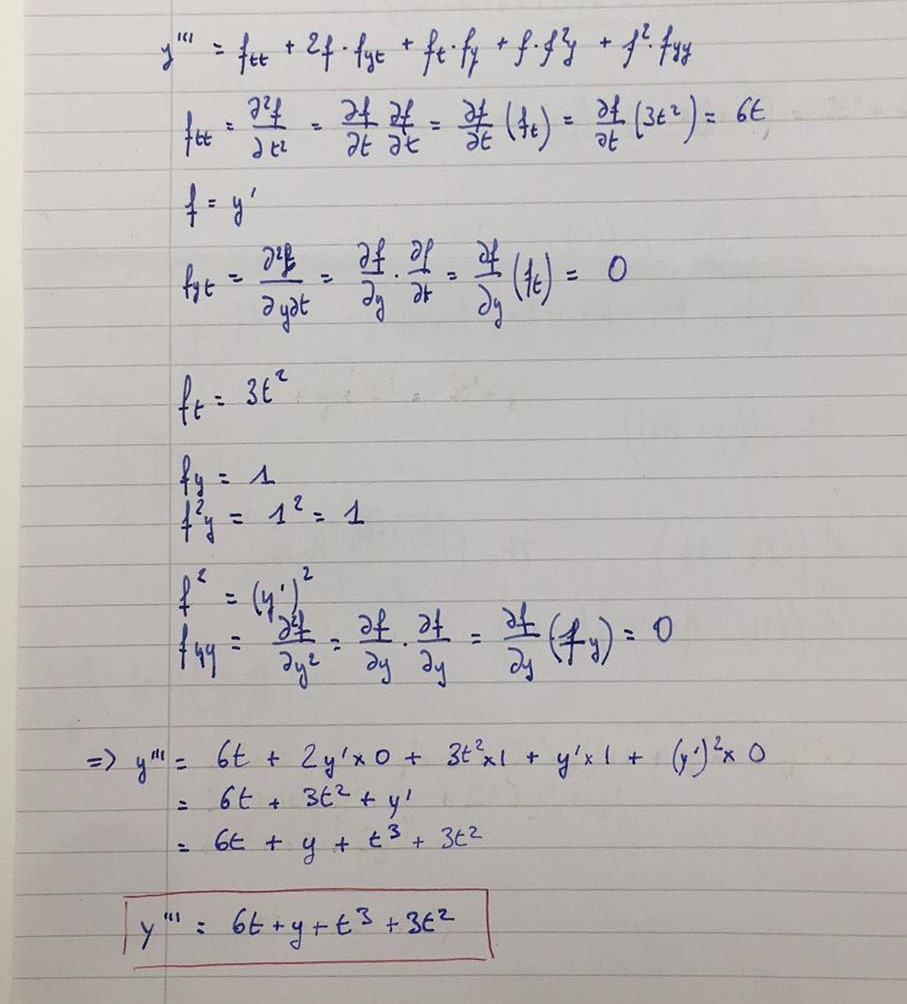 y''' = f_tt + 2f · f_yt + f_t · f_y + f · f²_y + f² · f_yy
f_tt = ∂²f/∂t² = ∂f/∂t ∂f/∂t = ∂f/∂t (f_t) = ∂f/∂t (3t²) = 6t
f = y'
f_yt = ∂²f/∂y∂t = ∂f/∂y · ∂f/∂t = ∂f/∂y (f_t) = 0
f_t = 3t²
f_y = 1
f²_y = 1² = 1
f² = (y')²
f_yy = ∂²f/∂y² = ∂f/∂y · ∂f/∂y = ∂f/∂y (f_y) = 0
=> y''' = 6t + 2y' × 0 + 3t² × 1 + y' × 1 + (y')² × 0
= 6t + 3t² + y'
= 6t + y + t³ + 3t²
y''' = 6t + y + t³ + 3t²